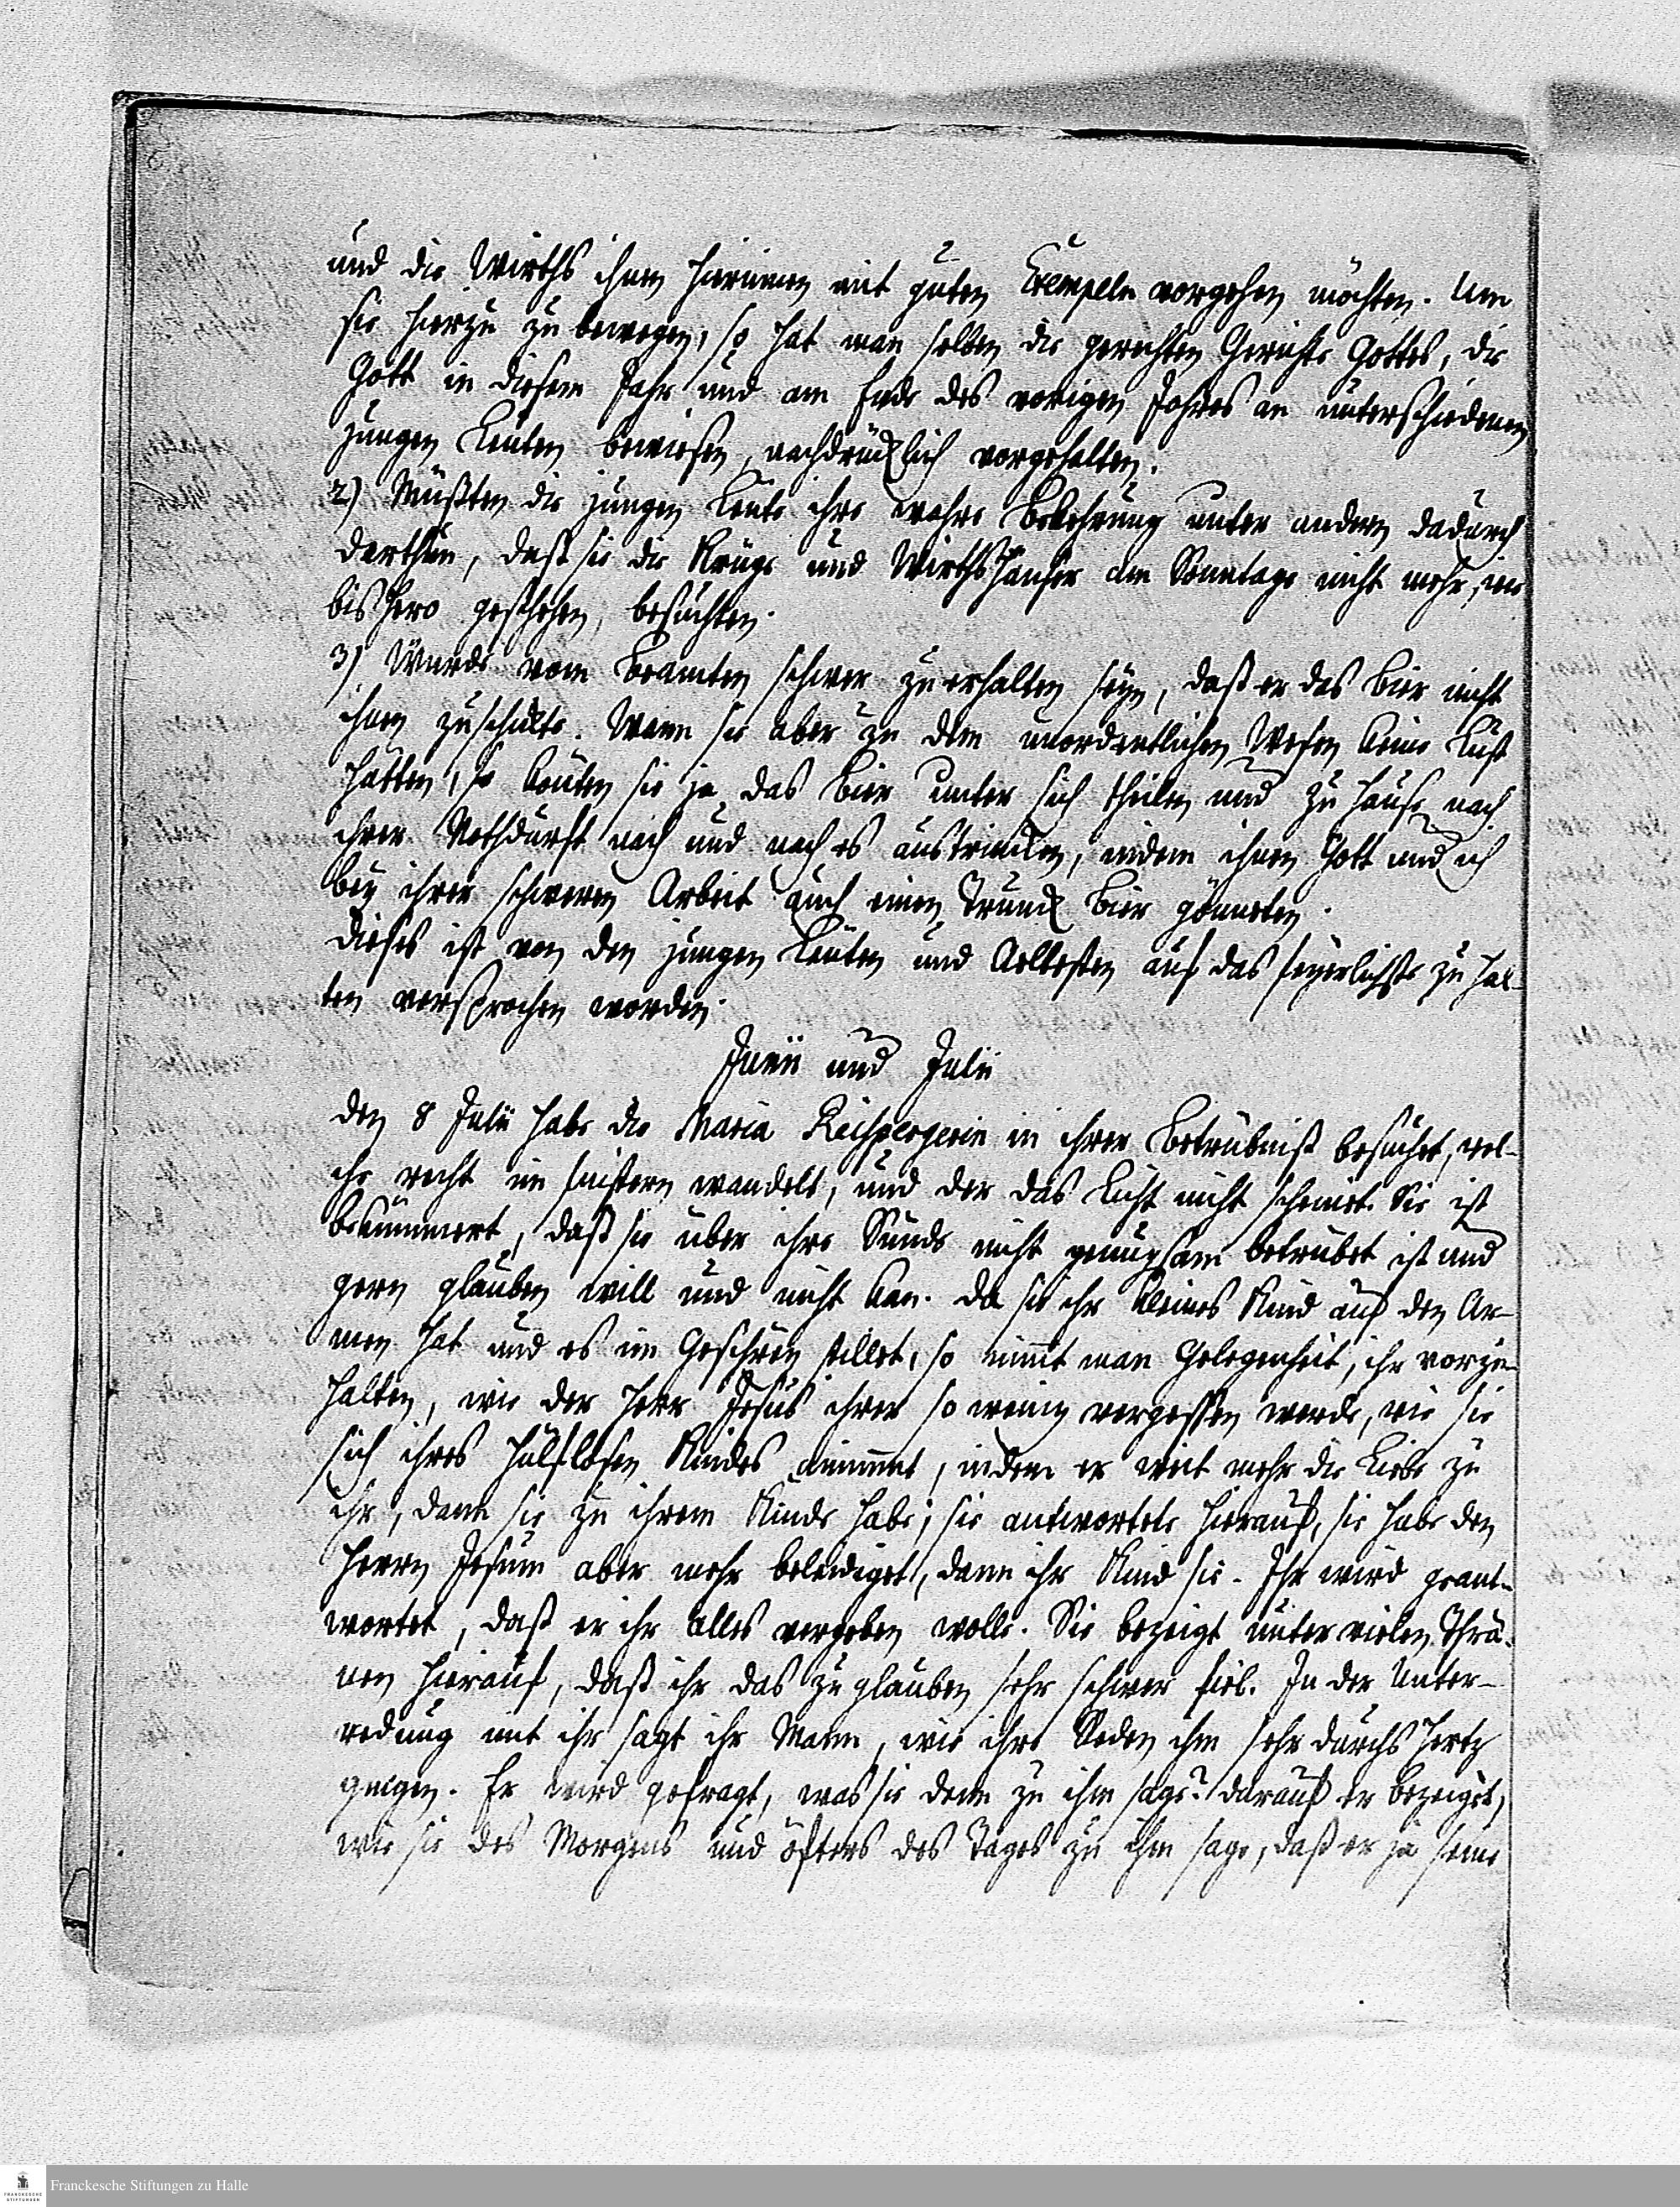 und die Wirths ihnen hierinnen mit guten Exempeln vorgehen möchten. Um
sie hierzu zu bewegen, so hat man selben die gerechten Gerichte Gottes, die
Gott in diesem Jahr und am Ende des vorigen Jahres an unterschiedenen
jungen Leuten bewiesen, nachdrücklich vorgehalten.
2) Müßten die jungen Leute ihre wahre Bekehrung unter andern dadurch
darthun, daß sie die Krüge und Wirthshäuser am Sonntage nicht mehr, wie
bishero geschehen, besuchten.
3) Würde vom Beamten schwer zu erhalten seyn, daß er das Bier nicht
ihnen zuschickte. Wenn sie aber zu dem unordentlichen Wesen keine Lust
hätten, so könten sie ja das Bier unter sich theilen und zu Hause nach
ihrer Nothdurft nach und nach es austrincken, indem ihnen Gott und ich
bey ihrer schweren Arbeit auch einen Trunck Bier gönneten.
Dieses ist von den jungen Leuten und Aeltesten auf das feyerlichste zu hal-
ten versprochen worden.
Junii und Julii
den 8 Julii habe die Maria Reichpergerin in ihrer Betrübniß besuchet, wel-
che recht im finstern wandelt, und der das Licht nicht scheinet. Sie ist
bekümmert, daß sie über ihre Sünde nicht genugsam betrübet ist und
gern glauben will und nicht kan. Da sie ihr kleines Kind auf den Ar-
men hat und es im Geschrey stillet, so nimmt man Gelegenheit, ihr vorzu-
halten, wie der Herr Jesus ihrer so wenig vergessen werde, wie sie
sich ihres hülflosen Kindes annimmt, indem er weit mehr die Liebe zu
ihr, dann sie zu ihrem Kinde habe; sie antwortete hierauf, sie habe den
Herrn Jesum aber mehr beleidiget, dann ihr Kind sie. Ihr wird geant-
wortet, daß er ihr alles vergeben wolle. Sie bezeigt unter vielen Thrä-
nen hierauf, daß ihr das zu glauben sehr schwer fiel. In der Unter-
redung mit ihr sagt ihr Mann, wie ihre Reden ihm sehr durchs Hertz
gingen. Er wird gefragt, was sie denn zu ihm sage? darauf er bezeiget,
wie sie des Morgens und öfters des Tages zu ihm sage, daß er ja seine
Franckesche Stiftungen zu Halle